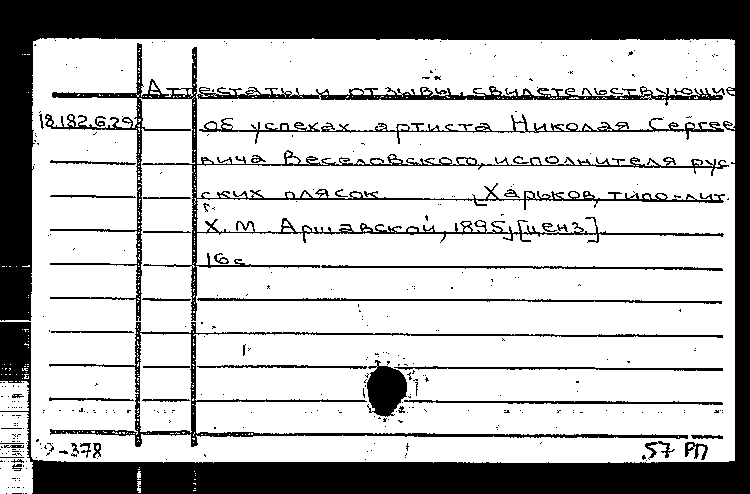 Аттестаты и отзывы, свидетельствующие
18.182.6.292
об успехах артиста Николая Сергее
вича Веселовского, исполнителя рус-
ских плясок [Харьков, типо-лит.
Х. М Аршавской, 1895] [ценз.].
16 с
9-378
57 РП